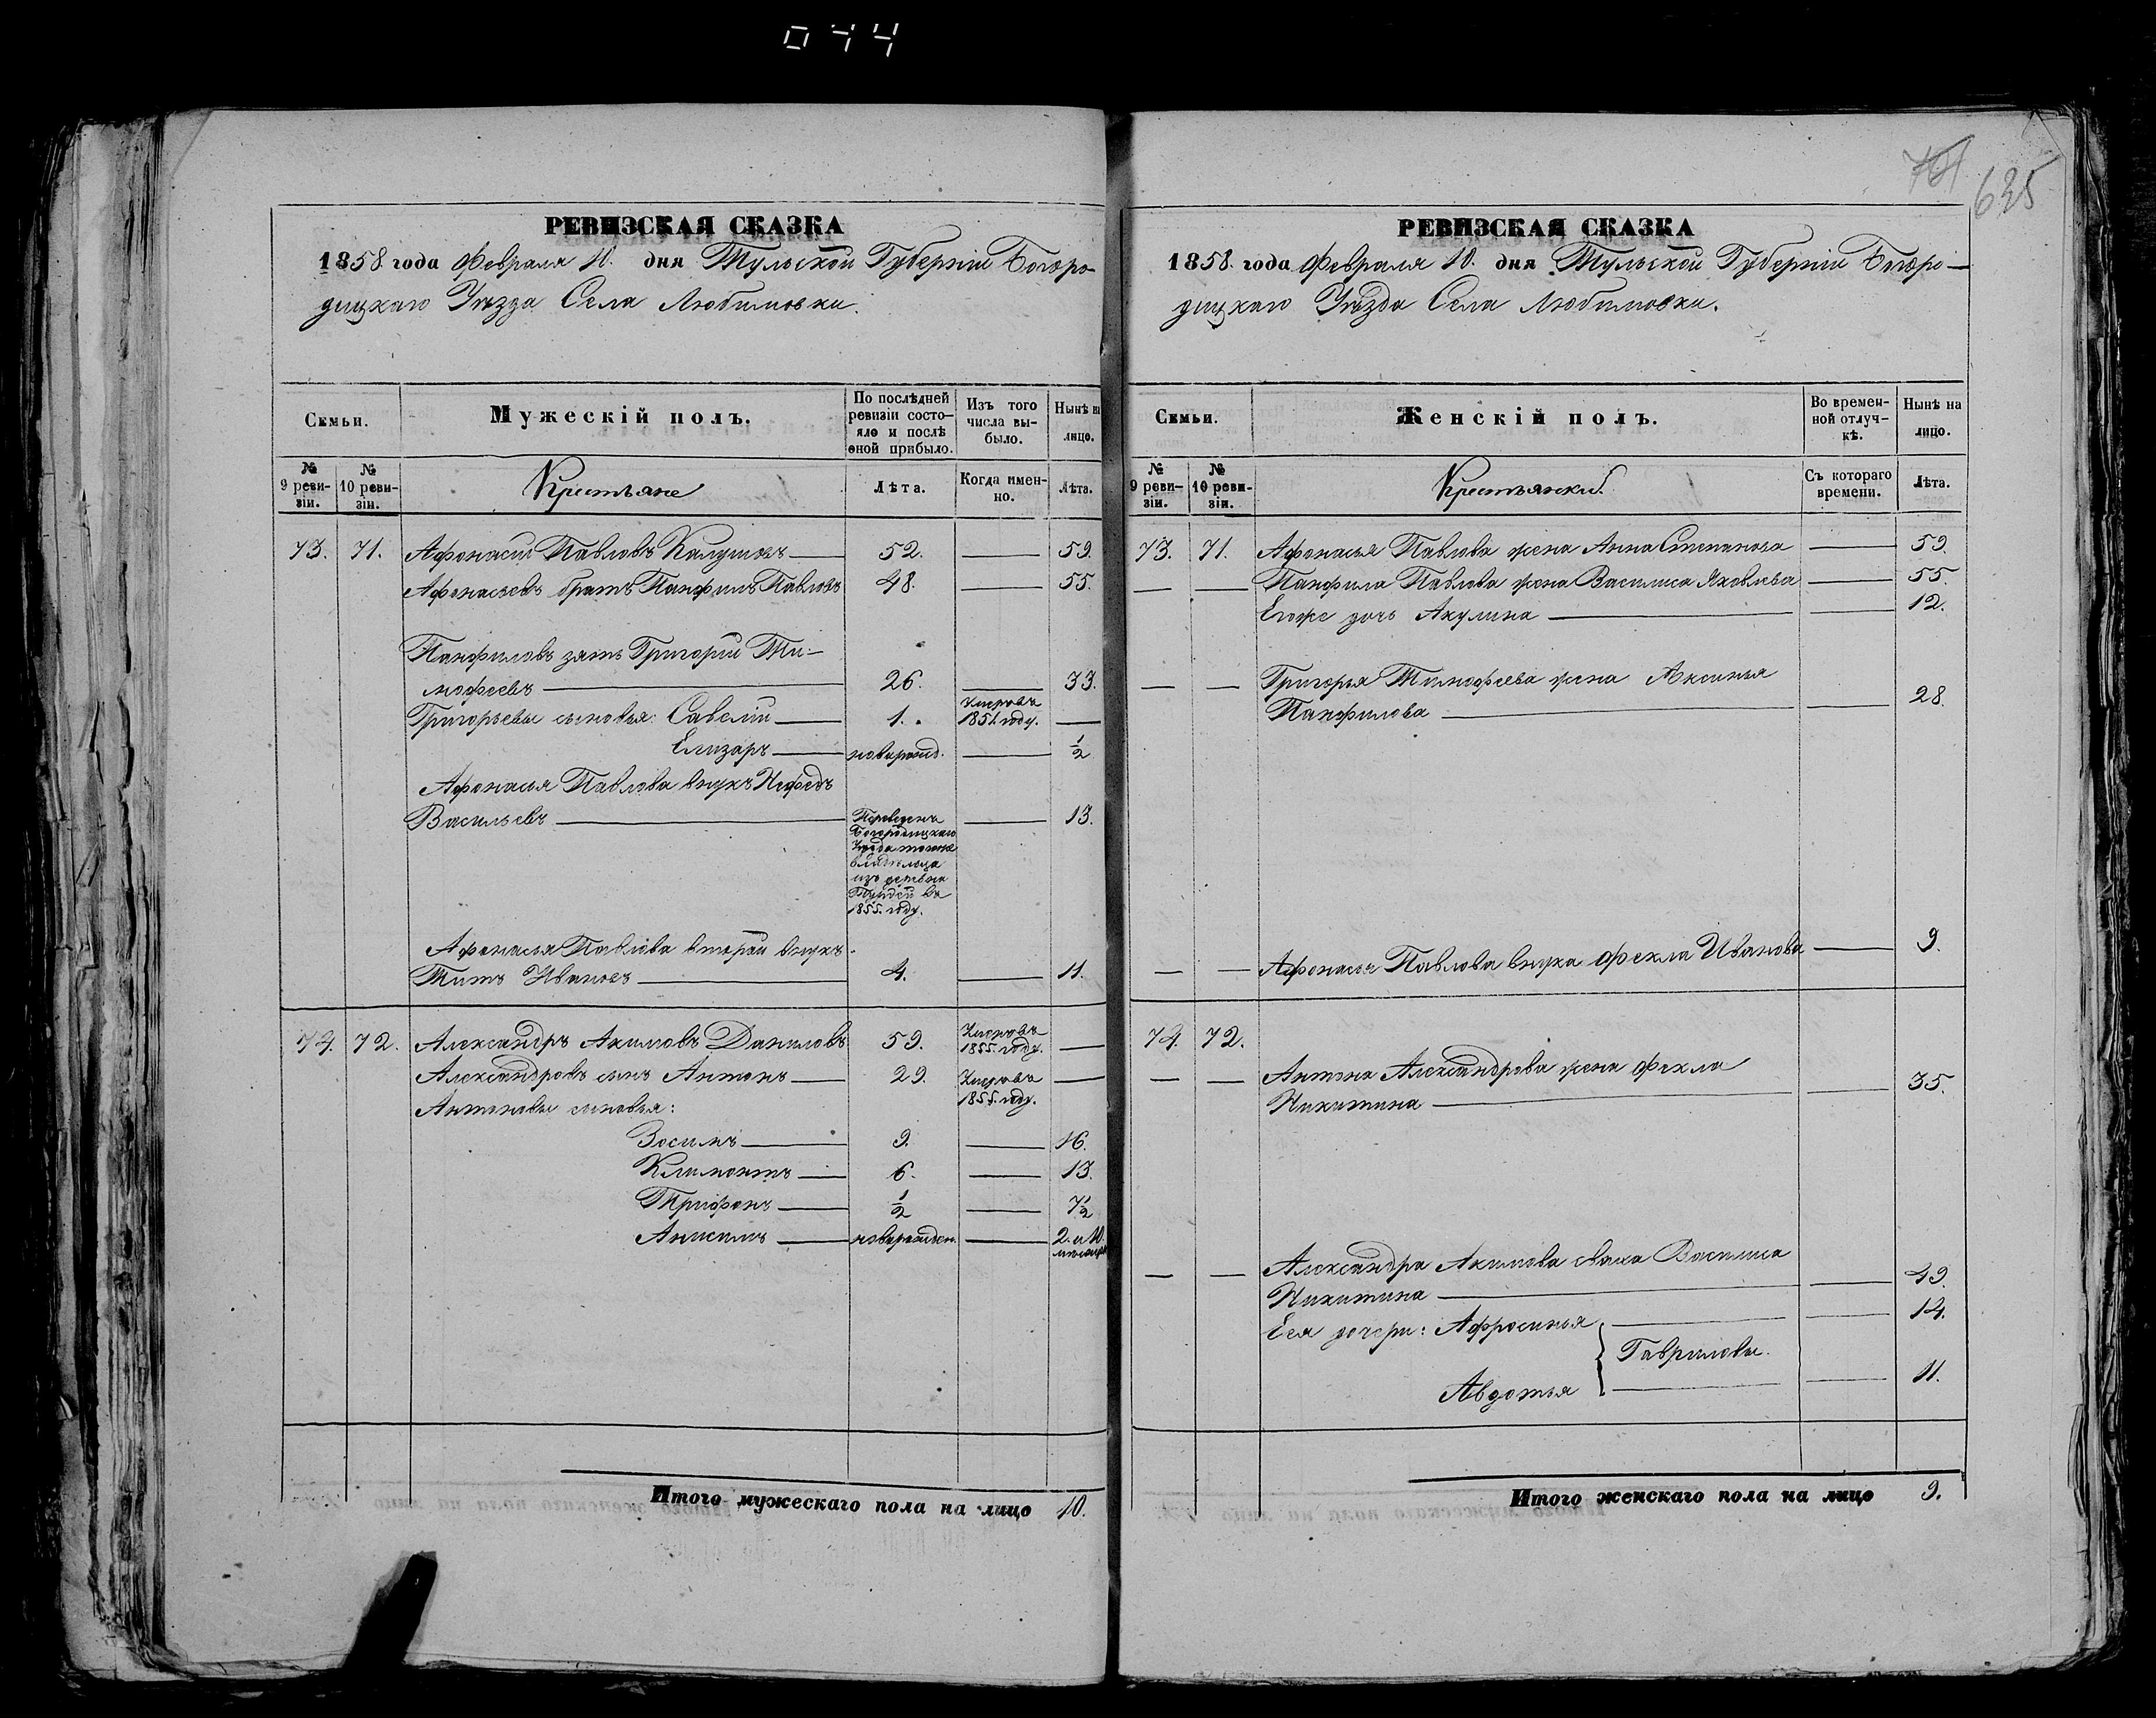 044
635
РЕВИЗСКАЯ СКАЗКА
1858 года Февраля 10. дня Тульской Губерніи Богоро-
дицкаго Уѣзда Села Любимовки.
Семьи.
Мужескій полъ.
По послѣдней ревизіи состо-яло и послѣ оной прибыло.
Изъ того числа вы-было.
Нынѣ на лицо.
№ 9 реви-зіи.
№ 10 реви-зіи.
Крестьяне
Лѣта.
Когда имен-но.
Лѣта.
73. 71. Афонасій Павловъ 52. 59.
Афонасьевъ братъ Панфилъ Павловъ 48. 55.
Панфиловъ зять Григорій Ти-
мофеевъ 26. 33.
Григорьевы сыновья: Савелій 1. Умеръ въ 1851. году.
Елизаръ новорожд. 1/2
Афонасья Павлова внукъ Нефедъ
Васильевъ 13.
Переведенъ
Богородицкаго
Уѣзда тогоже
владѣльца
изъ
въ
1855. году.
Афонасья Павлова второй внукъ
Титъ Ивановъ 4. 11.
74. 72. Александръ Акимовъ Даниловъ 59. Умеръ въ 1855. году.
Александровъ сынъ Антонъ 29. Умеръ въ 1855. году.
Антоновы сыновья:
Зосимъ 9. 16.
Климонтъ 6. 13.
Трифонъ 1/2 7 1/2
Анисимъ новорожден. 2. и 10. месяцовъ
Итого мужескаго пола на лицо 10.
РЕВИЗСКАЯ СКАЗКА
1858. года Февраля 10. дня Тульской Губерніи Богоро-
дицкаго Уѣзда Села Любимовки.
Семьи.
Женскій полъ.
Во времен-ной отлуч-кѣ.
Нынѣ на лицо.
№ 9 реви-зіи.
№ 10 реви-зіи.
Крестьянки.
Съ котораго времени.
Лѣта.
73. 71. Афонасья Павлова жена Анна Степанова 59.
Панфила Павлова жена Василиса Яковлева 55.
Егоже дочь Акулина 12.
Григорья Тимофеева жена Аксинья
Панфилова 28.
Афонасья Павлова внука Фекла Иванова 9.
74. 72.
Антона Александрова жена Фекла
Никитина 35.
Александра Акимова сваха Василиса
Никитина 49.
Ея дочери: Афросинья 14.
Гавриловы.
Авдотья 11.
Итого женскаго пола на лицо 9.